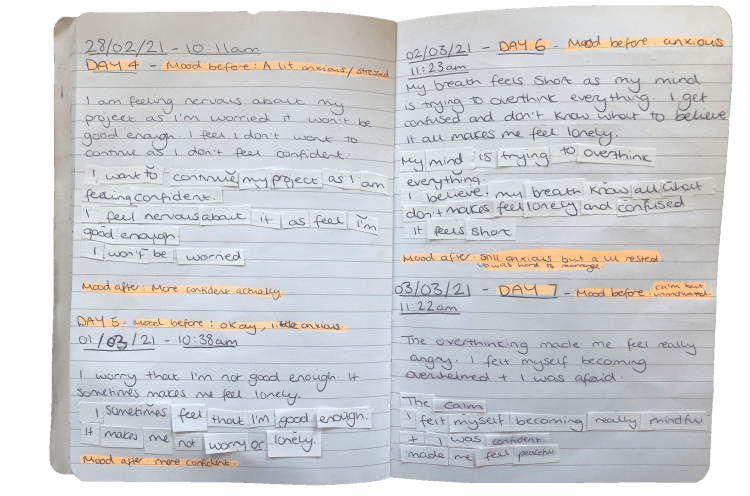 28/02/21 - 10:11am
DAY 4 - Mood before: A lil anxious/stressed
I am feeling nervous about my
project as I'm worried it won't be
good enough. I feel I don't want to
continue as I don't feel confident.
I want to continue my project as I am
feeling confident.
I feel nervous about it as feel I'm
good enough.
I won't be worried
Mood after: More confident actually.
DAY 5 - Mood before: okay, little anxious.
01/03/21 - 10:38am
I worry that I'm not good enough. It
sometimes makes me feel lonely.
I sometimes feel that I'm good enough.
It makes me not worry or lonely.
Mood after: more confident.
02/03/21 - DAY 6 - Mood before anxious
11:23am
My breath feels short as my mind
is trying to overthink everything. I get
confused and don't know what to believe
it all makes me feel lonely.
My mind is trying to overthink
everything.
I believe my breath know all what
don't makes feel lonely and confused
It feels short
Mood after: still anxious but a lil rested.
was hard to rearrange
03/03/21 - DAY 7 - Mood before: calm but
unmotivated.
11:22am
The overthinking made me feel really
angry. I felt myself becoming
overwhelmed + I was afraid.
The calm
I felt myself becoming really mindful
+ I was confident
made me feel peaceful